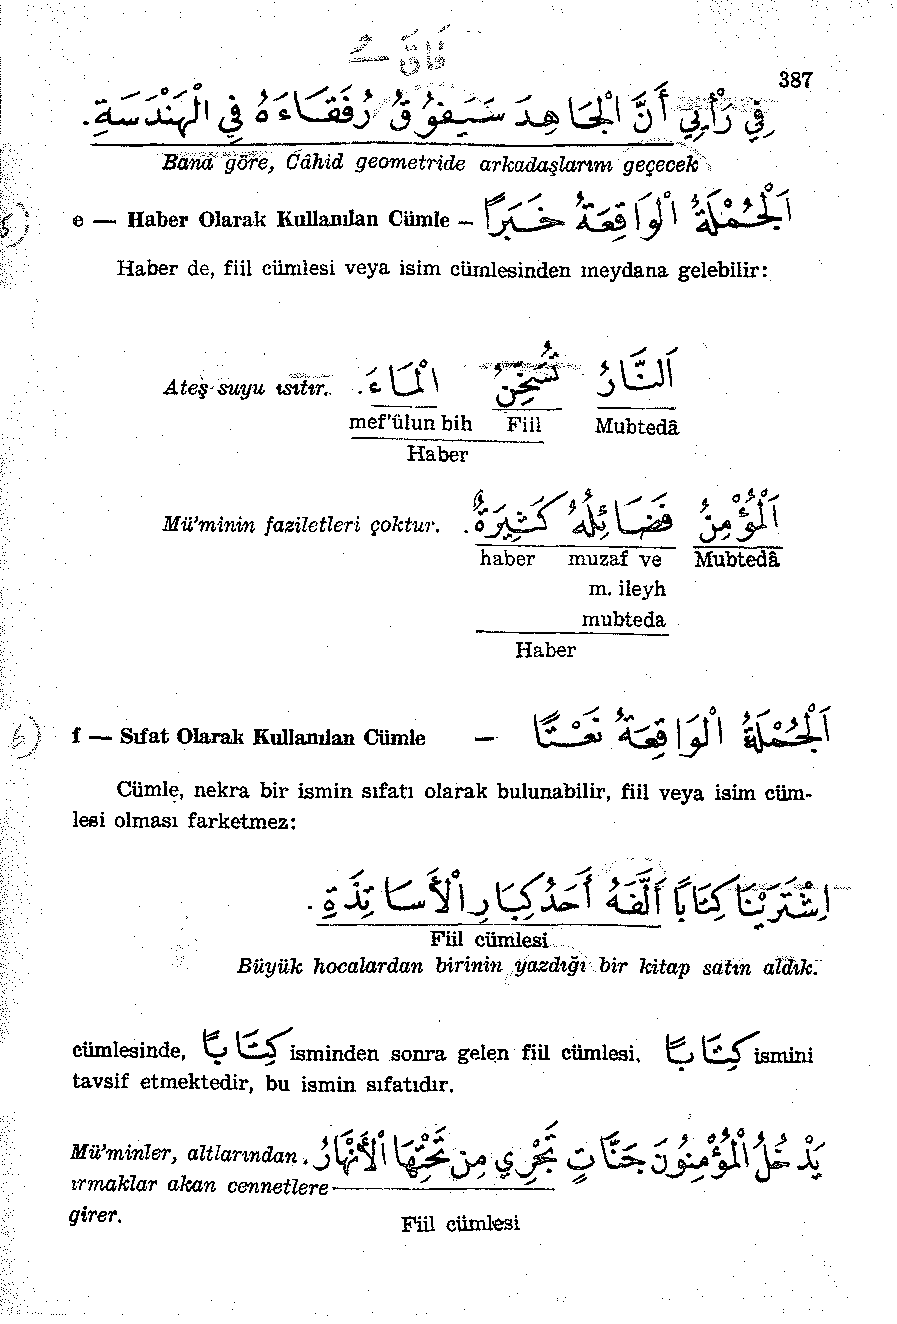 فَاقَ ـُ
387
فِي رَأْيِي أَنَّ الْجَاهِدَ سَيَفُوقُ رُفَقَاءَهُ فِي الْهَنْدَسَةِ.
Bana göre, Câhid geometride arkadaşlarını geçecek
e — Haber Olarak Kullanılan Cümle – اَلْجُمْلَةُ الْوَاقِعَةُ خَبَرًا
Haber de, fiil cümlesi veya isim cümlesinden meydana gelebilir:
Ateş suyu ısıtır. اَلنَّارُ تُسَخِّنُ الْمَاءَ.
mef'ûlun bih Fiil Mubtedâ
Haber
Mü'minin faziletleri çoktur. اَلْمُؤْمِنُ فَضَائِلُهُ كَثِيرَةٌ.
haber muzaf ve Mubtedâ
m. ileyh
mubteda
Haber
f — Sıfat Olarak Kullanılan Cümle – اَلْجُمْلَةُ الْوَاقِعَةُ نَعْتًا
Cümle, nekra bir ismin sıfatı olarak bulunabilir, fiil veya isim cüm-
lesi olması farketmez:
اِشْتَرَيْنَا كِتَابًا أَلَّفَهُ أَحَدُ كِبَارِ الْأَسَاتِذَةِ.
Fiil cümlesi
Büyük hocalardan birinin yazdığı bir kitap satın aldık.
cümlesinde, كِتَابًا isminden sonra gelen fiil cümlesi, كِتَابًا ismini
tavsif etmektedir, bu ismin sıfatıdır.
Mü'minler, altlarından يَدْخُلُ الْمُؤْمِنُونَ جَنَّاتٍ تَجْرِي مِنْ تَحْتِهَا الْأَنْهَارُ.
ırmaklar akan cennetlere
girer.
Fiil cümlesi